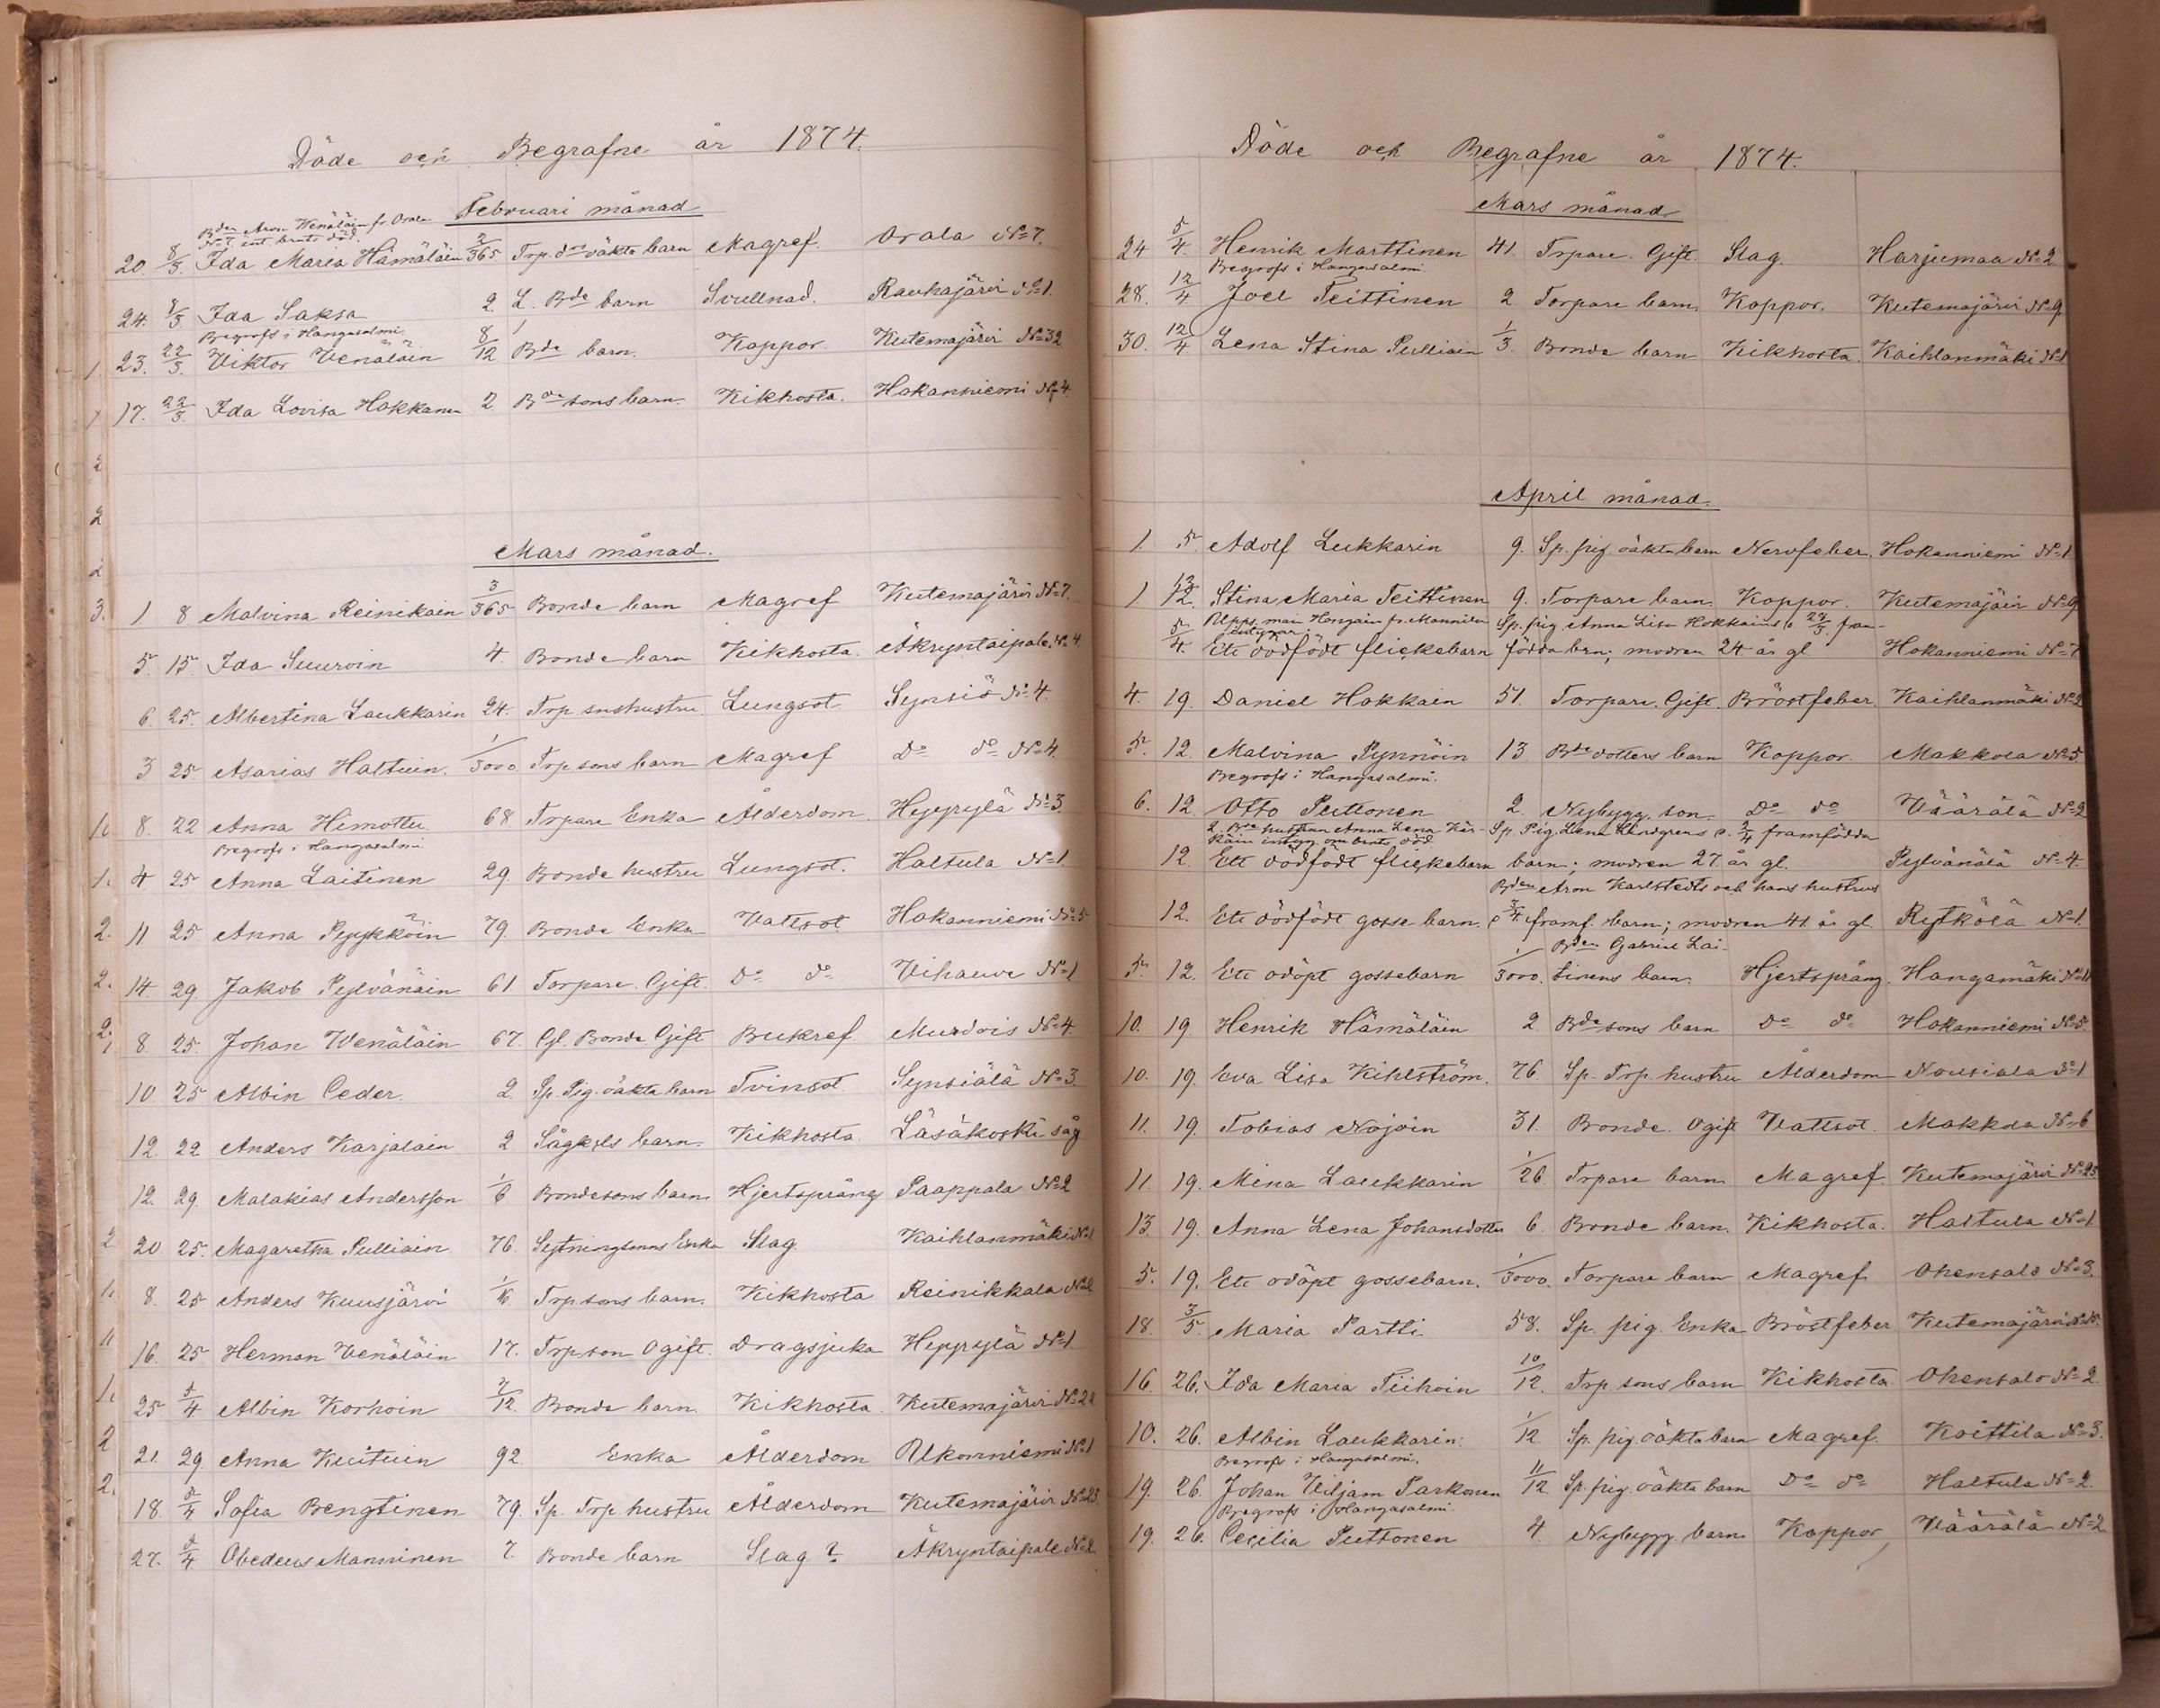 Döde och Begrafne år 1874.
Februari månad
Bden Aron Wenäläin fr. Orala
No 7, int. barnets död.
20. 8/3. Ida Maria Hämäläin 2/365 Trp. oäkta barn Magref. Orala No 7.
24. 8/3 Ida Saksa 2. L. Bde barn Svullnad. Rauhajärvi No 1.
Begrofs i Hangasalmi.
23. 22/3. Viktor Venäläin 8/12 Bde barn. Koppor. Kutemajärvi No 32
17. 22/3. Ida Lovisa Hakkanen 2 Bde sons barn. Kikhosta. Hokanniemi No 4
Mars månad.
1 8 Malvina Reinikain 3/365 Bonde barn Magref Kutemajärvi No 7.
5. 15. Ida Suuroin 4. Bonde barn Kikhosta. Äkryntaipale No 4
6. 25. Albertina Laukkarin 24. Trp. snshustru Lungsot. Synsiö No 4.
3 25 Asarias Haltuin. 1/3000. Trp sons barn Magref Do do No 4.
8. 22 Anna Himottu. 68 Trpare Enka Ålderdom. Heppylä No 3.
Begrofs i Hangasalmi
4 25 Anna Laitinen 29. Bonde hustru Lungsot. Haltula No 1
11 25. Anna Pyykköin 79. Bonde Enka Vattsot Hokanniemi No 5
14. 29. Jakob Pylvänäin 61 Torpare. Gift. Do do Vihavue No 1
8. 25. Johan Wenäläin 67. Gl. Bonde Gift Bukref. Murdois No 4.
10. 25 Albin Ceder. 2. Sp. Pig. oäkta barn Tvinsot Synsiälä No 3.
12. 22 Anders Karjalain 2 Sågkrls barn. Kikhosta. Läsäkoski såg
12. 29. Malakias Andersson 1/6 Bondesons barn. Hjertsprång Paappala No 2
20. 25. Magaretha Pulliain 76. Sytningsmns Enka Slag. Kaihlanmäki No 1
8. 25 Anders Kuusjärvi Trp sons barn. Kikhosta Reinikkala No 2
16. 25 Herman Venäläin 17. Trpson Ogift. Dragsjuka Heppylä No 1.
25 5/4 Albin Korhoin 7/12. Bonde barn. Kikhosta. Kutemajärvi No 22
21. 29. Anna Kuituin 92. Enka Ålderdom Ulkonniemi No 1
18. 5/4 Sofia Bengtinen 79. Sp. Trp hustru Ålderdom Kutemajärvi No 23.
27. 5/4 Obedeus Manninen 7. Bonde barn Slag? Äkryntaipale No 2.
Döde och Begrafne år 1874.
Mars månad
24 5/4. Henrik Marttinen 41. Trpare. Gift. Slag. Harjumaa No 2
Begrofs i Hangasalmi.
28. 12/4 Joel Teittinen 2. Torpare barn. Koppor. Kutemajärvi No 9
30. 12/4 Lena Stina Pulliain 1/3. Bonde barn Kikhosta. Kaihlanmäki No 1
April månad.
1. 5. Adolf Lukkarin 9. Sp. pig oäkta barn Nervfeber. Hokanniemi No 1.
1. 12. Stina Maria Teittinen 9. Torpare barn. Koppor. Kutemajärvi No 9
Sp. pig Anna Lisa Hokkains fram-
5/4. Ett dödfödt flickebarn födda brn; modren 24. år gl. Hokanniemi No 7
4. 19. Daniel Hokkain 51. Torpare. Gift. Bröstfeber. Kaihlanmäki No 2
5. 12. Malvina Pynnöin 13. Bde dotters barn Koppor. Makkola No 5.
Begrofs i Hangasalmi.
6. 12 Otto Puttonen 2. Nybygg. son. Do do Väärälä No 2
L. Bde hustrun Anna Lena Kär- Sp. Pig. Lena Lindgrens framfödda
käin intyg om brnts död
12. Ett dödfödt flickebarn barn; modren 27. år gl. Pylvänälä No 4.
Bden Aron Karlstedts och hans hustrus
12. Ett dödfödt gosse barn. framf. barn; modren 41 år gl. Rytkölä No 1.
Bden Gabriel Lai-
5. 12. Ett odöpt gossebarn 1/3000. tinens barn. Hjertsprång. Hangamäki
10. 19. Henrik Hämäläin 2. Bde sons barn Do do Hokanniemi No 5.
10. 19. Eva Lisa Kihlström. 76 Sp. Trp hustru Ålderdom Nousiala No 1
11. 19. Tobias Nojoin 31. Bonde. Ogift Vattsot. Makkola No 6
11. 19. Mina Laukkarin 1/26 Trpare barn Magref. Kutemajärvi No 25
13. 19. Anna Lena Johansdotter 6. Bonde barn. Kikhosta. Haltula No 1.
5. 19. Ett odöpt gossebarn. 1/3000. Torpare barn Magref. Ohensalo No 3.
18. 3/5. Maria Partti 58. Sp. pig. Enka Bröstfeber Kutemajärvi
16. 26. Ida Maria Tiihoin 10/12. Trp sons barn Kikhosta Ohensalo No 2.
10. 26. Albin Laukkarin. 1/12 Sp. pig. oäkta barn Magref. Koittila No 3.
Begrofs i Hangasalmi.
19. 26. Johan Viljam Parkonen 11/12 Sp. pig. oäkta barn Do do Haltula No 2.
Begrofs i Hangasalmi.
19. 26. Cecilia Puttonen 4. Nybygg. barn Koppor Väärälä No 2